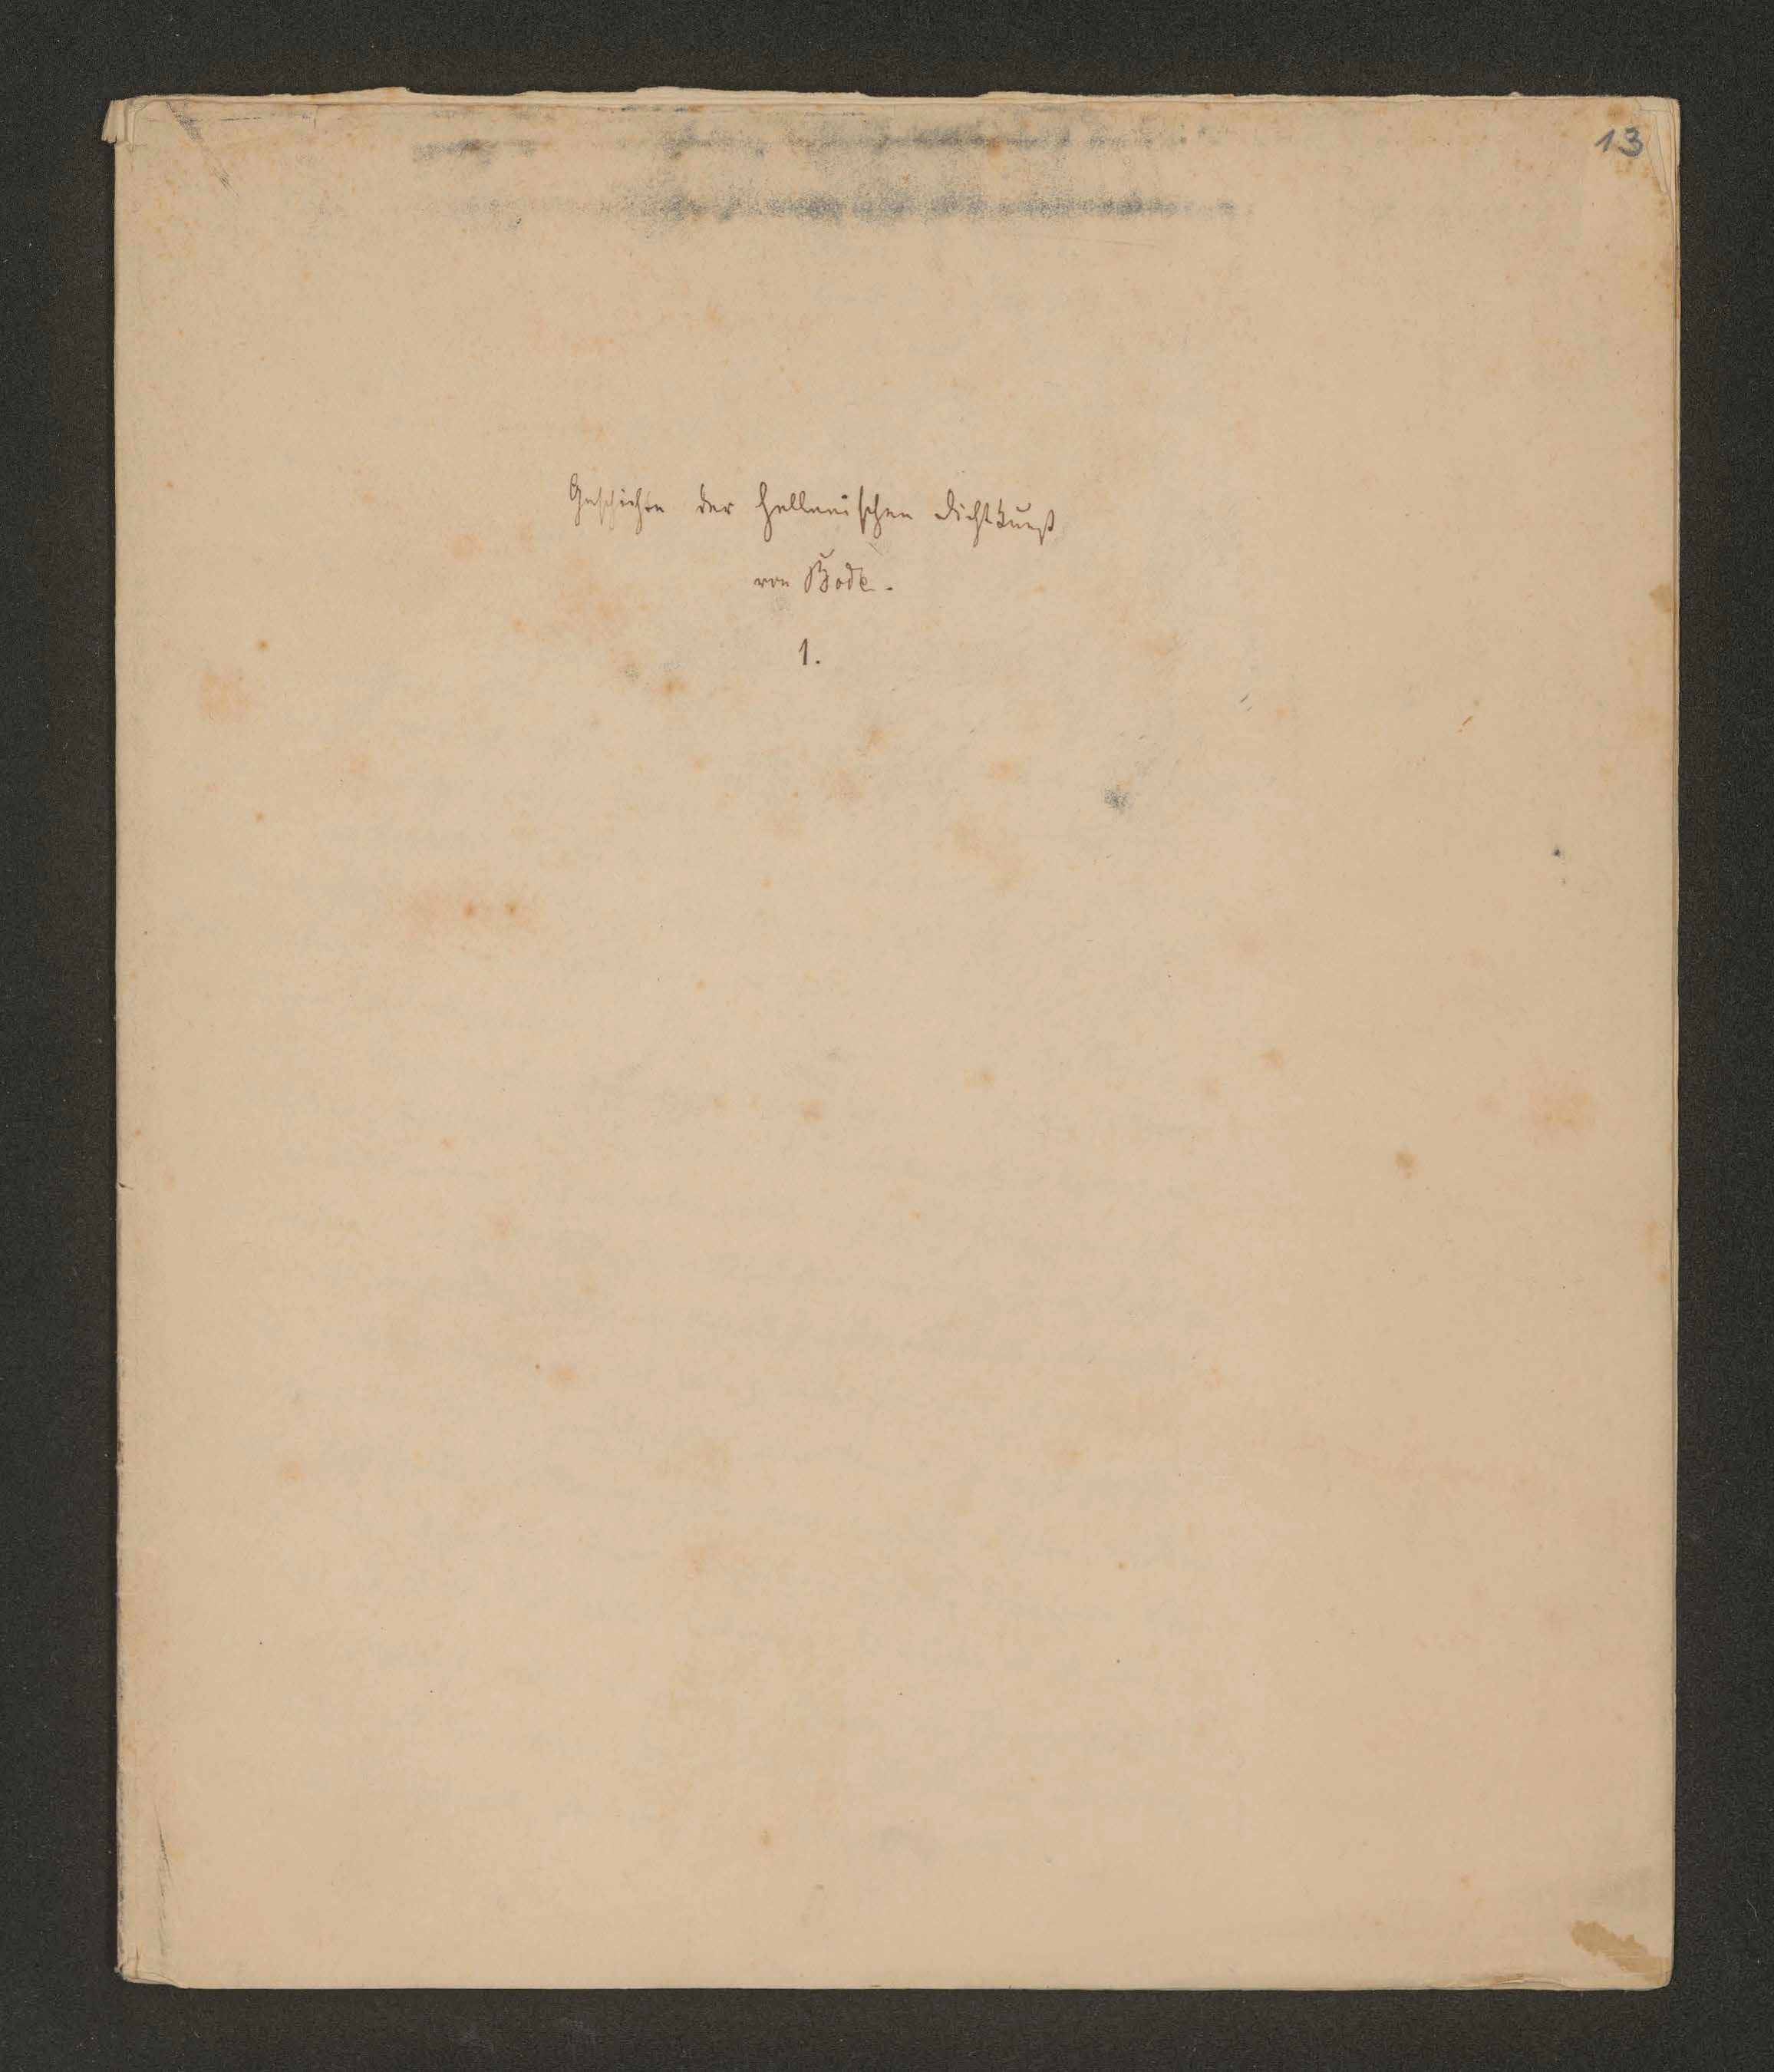 13
Geschichte der hellenischen Dichtkunst
von Bode.
1.